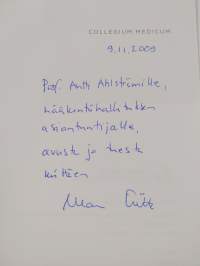 COLLEGIUM MEDICUM
9.11.2009
Prof. Antti Ahlströmille,
lääkintöhallituksen
asiantuntijalle,
avusta ja
kiittäen